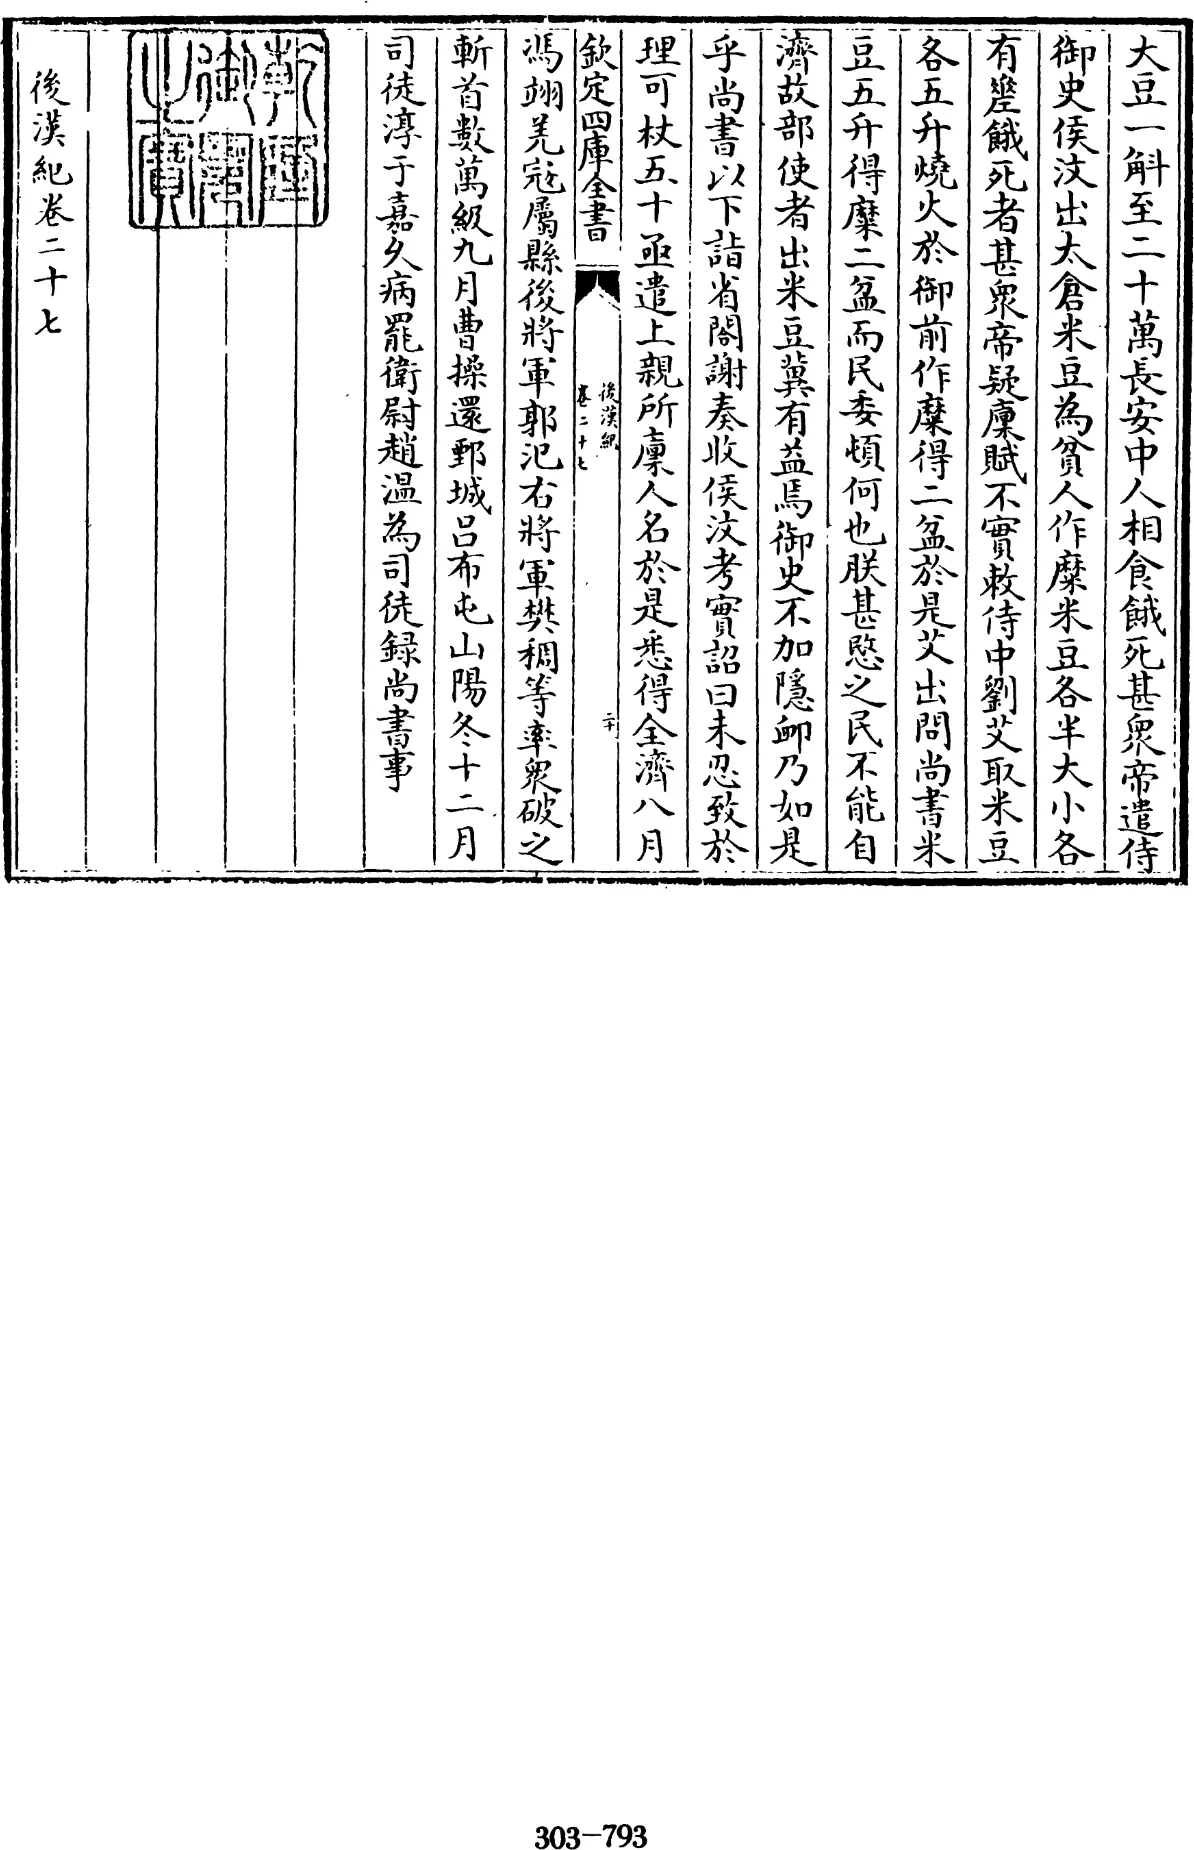 大豆一斛至二十萬長安中人相食餓死甚衆帝遣侍
御史侯汶出太倉米豆為貧人作糜米豆各半大小各
有差餓死者甚衆帝疑廩賦不實敕侍中劉艾取米豆
各五升燒火於御前作糜得二盆於是艾出問尚書米
豆五升得糜二盆而民委頓何也朕甚愍之民不能自
濟故部使者出米豆冀有益焉御史不加隱卹乃如是
乎尚書以下詣省閣謝奏收侯汶考實詔曰未忍致於
理可杖五十亟遣上親所廩人名於是悉得全濟八月
欽定四庫全書
後漢紀
卷二十七
二十
馮翊羌寇屬縣後將軍郭汜右將軍樊稠等率衆破之
斬首數萬級九月曹操還鄄城呂布屯山陽冬十二月
司徒淳于嘉久病罷衛尉趙溫為司徒録尚書事
乾隆御覽之寶
後漢紀卷二十七
303-793